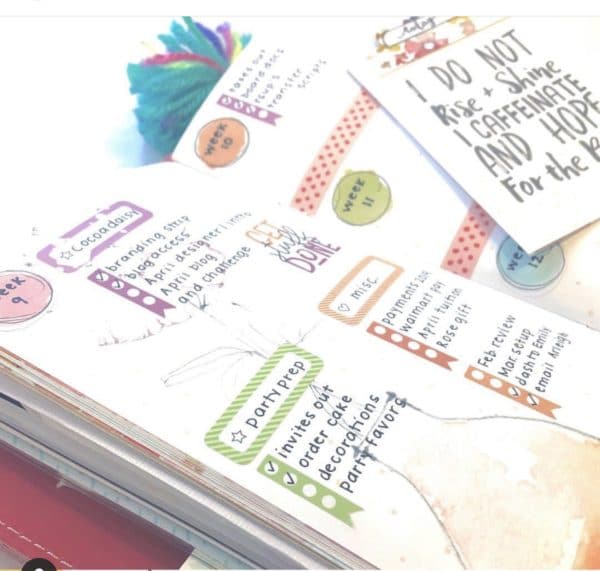 taxes out
board docs
rsvp's
transfer
scripts
week
10
today
I DO NOT
Rise + Shine
I CAFFEINATE
AND HOPE
For the
week
11
GET
stuff
DONE
week
12
week
9
Cocoadaisy
branding strip
blog access
April designer/intro
April blog
and challenge
misc.
payments
walmart pay
April tuition
Rose gift
Feb review
Mar. setup
dash to Emily
email
party prep
invites out
order cake
decorations
party favors